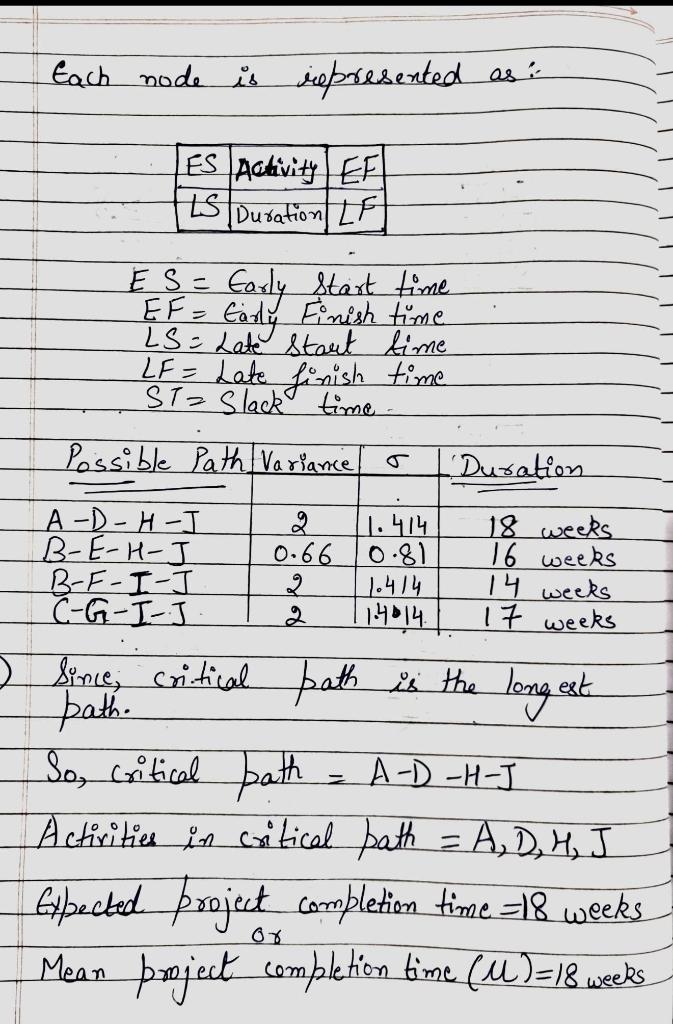 Each node is represented as :-
ES Activity EF
LS Duration LF
ES = Early Start time
EF = Early Finish time
LS = Late Start time
LF = Late finish time
ST = Slack time
Possible Path Variance σ Duration
A-D-H-J 2 1.414 18 weeks
B-E-H-J 0.66 0.81 16 weeks
B-F-I-J 2 1.414 14 weeks
C-G-I-J 2 1.414 17 weeks
Since, critical path is the longest
path.
So, critical path = A-D-H-J
Activities in critical path = A, D, H, J
Expected project completion time = 18 weeks
or
Mean project completion time (μ) = 18 weeks